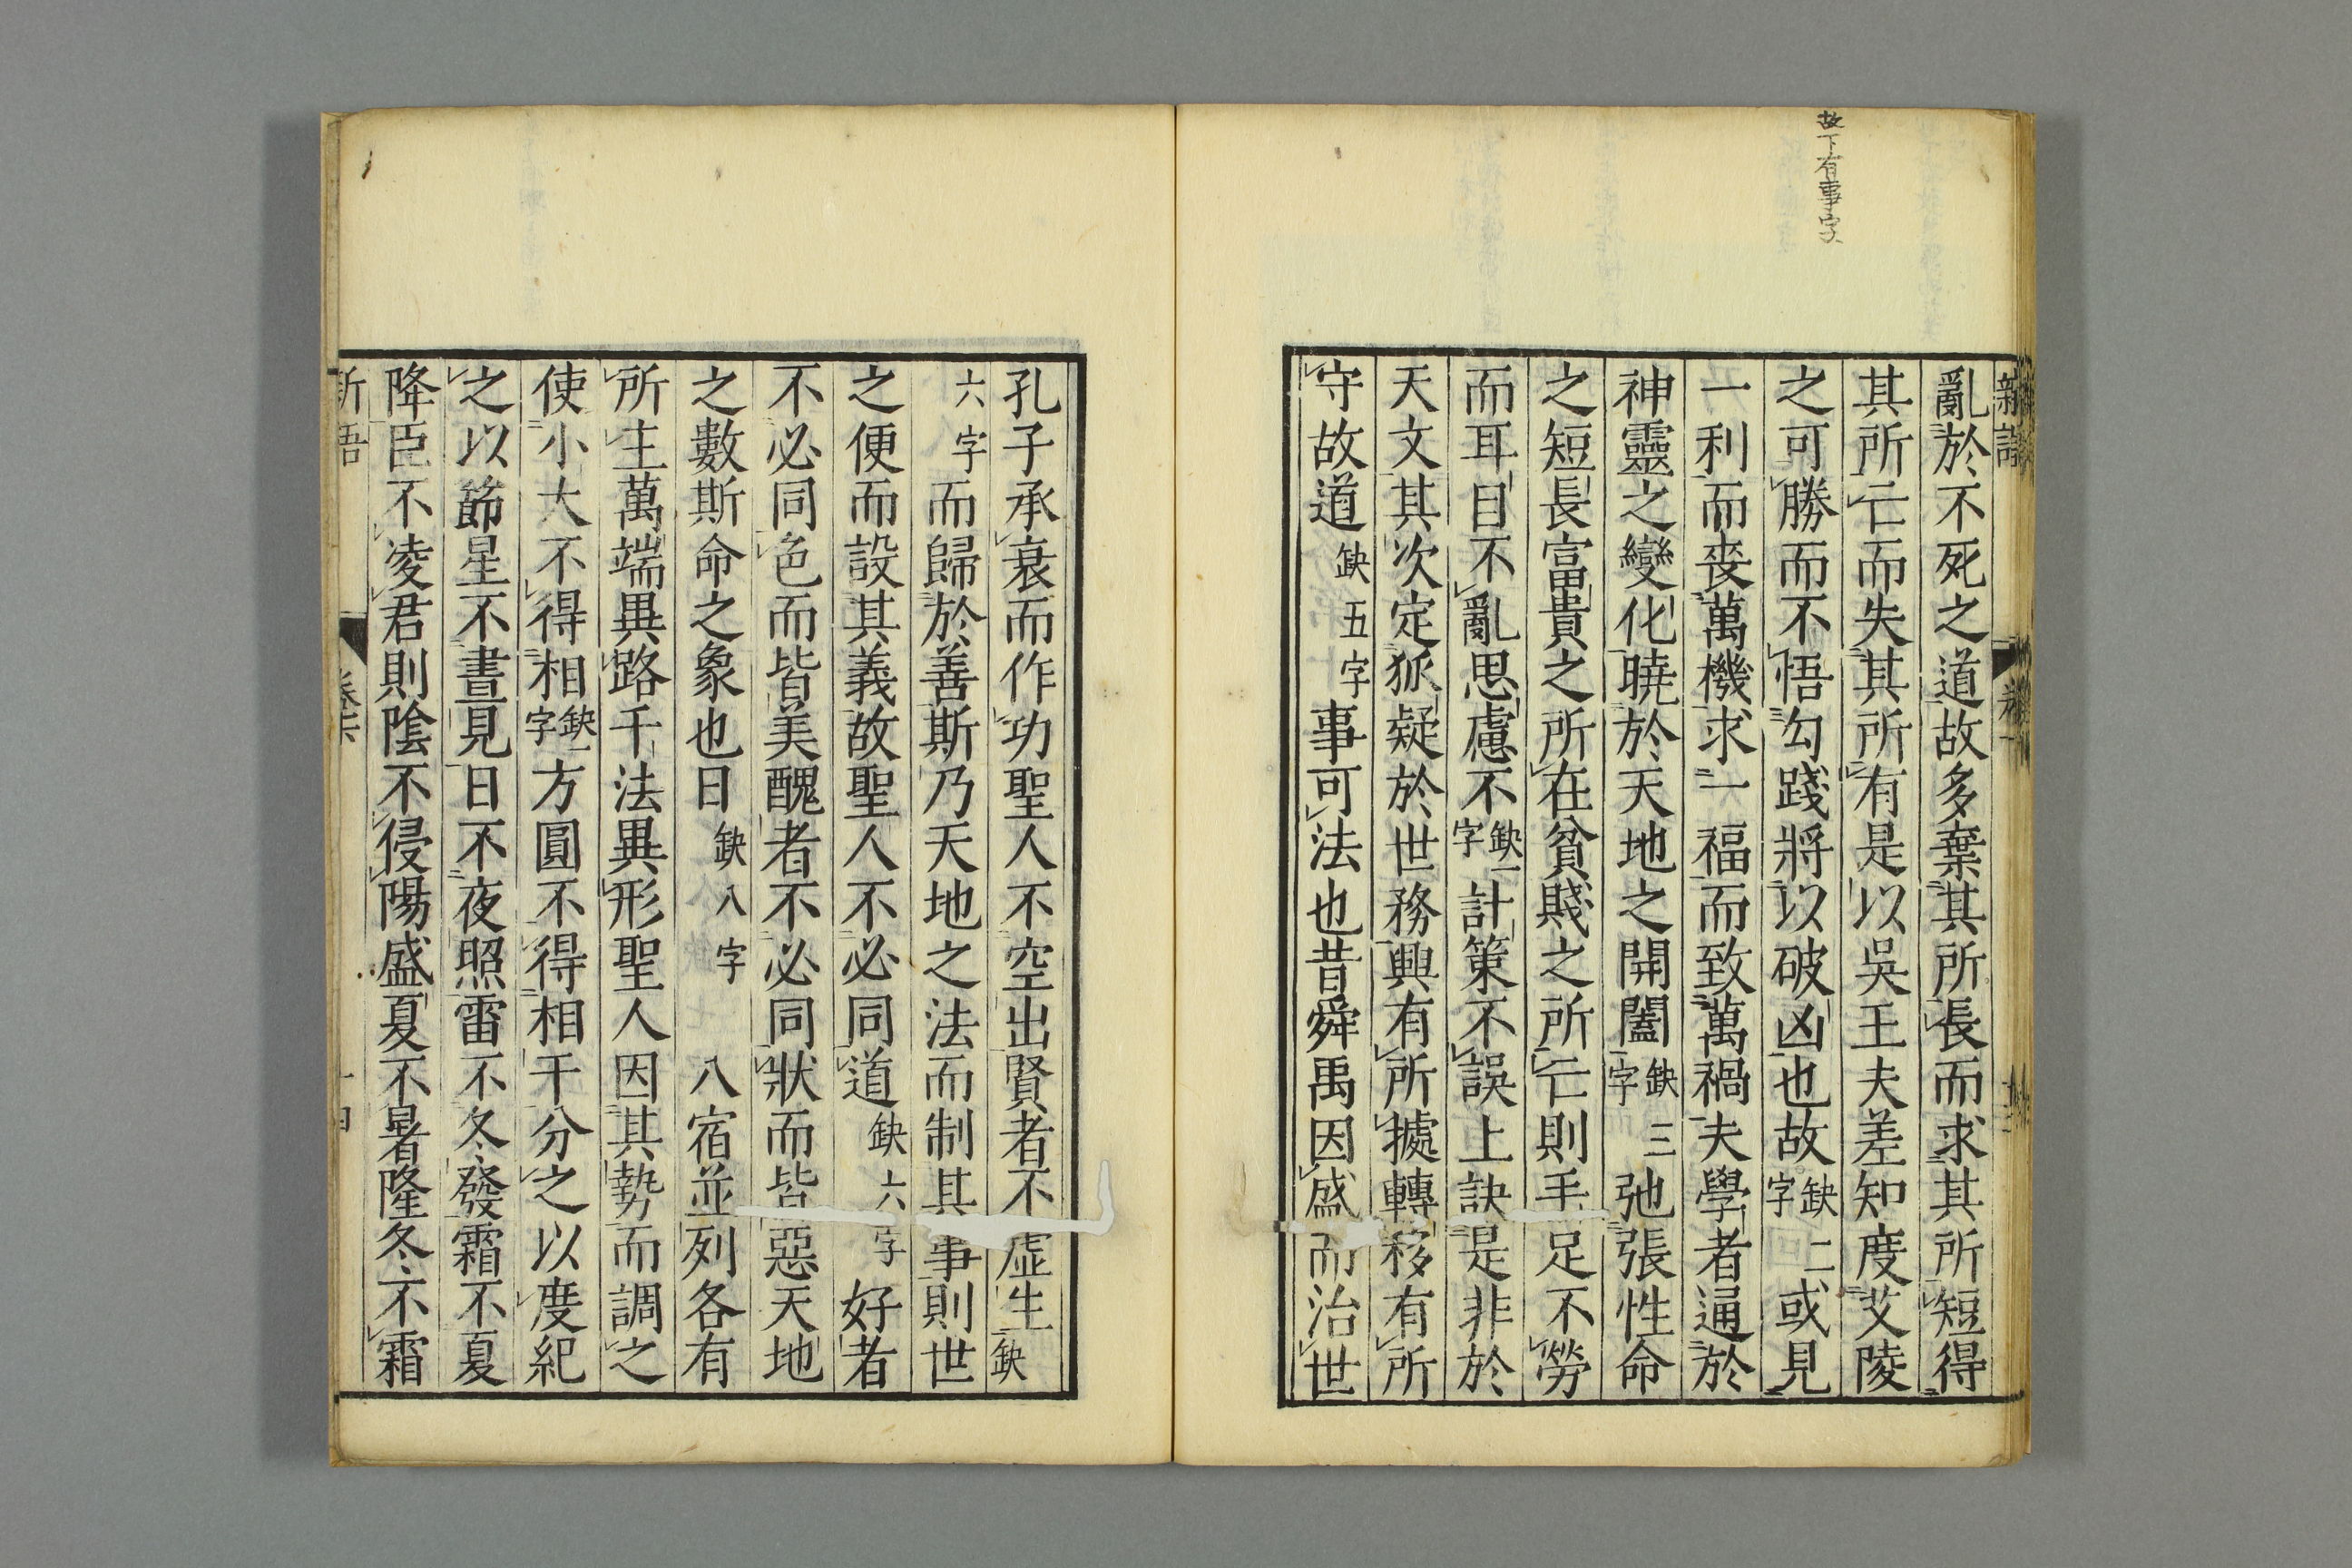 故下有事字
亂於不死之道故多棄其所長而求其所短得
其所亡而失其所有是以吳王夫差知度艾陵
之可勝而不悟勾踐將以破凶也故缺二字或見
一利而喪萬機求一福而致萬禍夫學者通於
神靈之變化曉於天地之開闔缺三字弛張性命
之短長富貴之所在貧賤之所亡則手足不勞
而耳目不亂思慮不缺一字計策不誤上訣是非於
天文其次定狐疑於世務興有所據轉移有所
守故道缺五字事可法也昔舜禹因盛而治世
孔子承衰而作功聖人不空出賢者不虛生缺
六字而歸於善斯乃天地之法而制其事則世
之便而設其義故聖人不必同道缺六字好者
不必同色而皆美醜者不必同狀而皆惡天地
之數斯命之象也日缺八字八宿並列各有
所主萬端異路千法異形聖人因其勢而調之
使小大不得相缺一字方圓不得相干分之以度紀
之以節星不晝見日不夜照雷不冬發霜不夏
降臣不凌君則陰不侵陽盛夏不暑隆冬不霜
新語